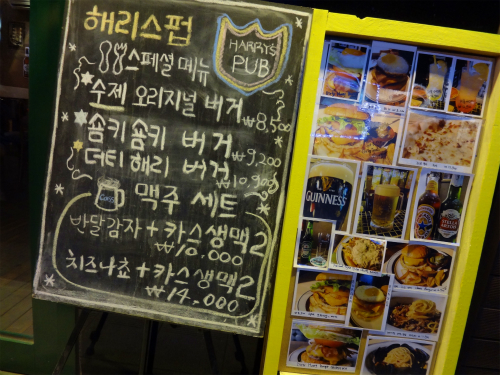 해리스펍
HARRYS
PUB
스페셜 메뉴
수제 오리지널 버거
₩8,500
솜키솜키 버거
₩9,200
더티해리 버거
₩10,900
맥주 세트
반달감자+카스생맥2
₩10,000
치즈나쵸+카스생맥2
₩14,000
GUINNESS